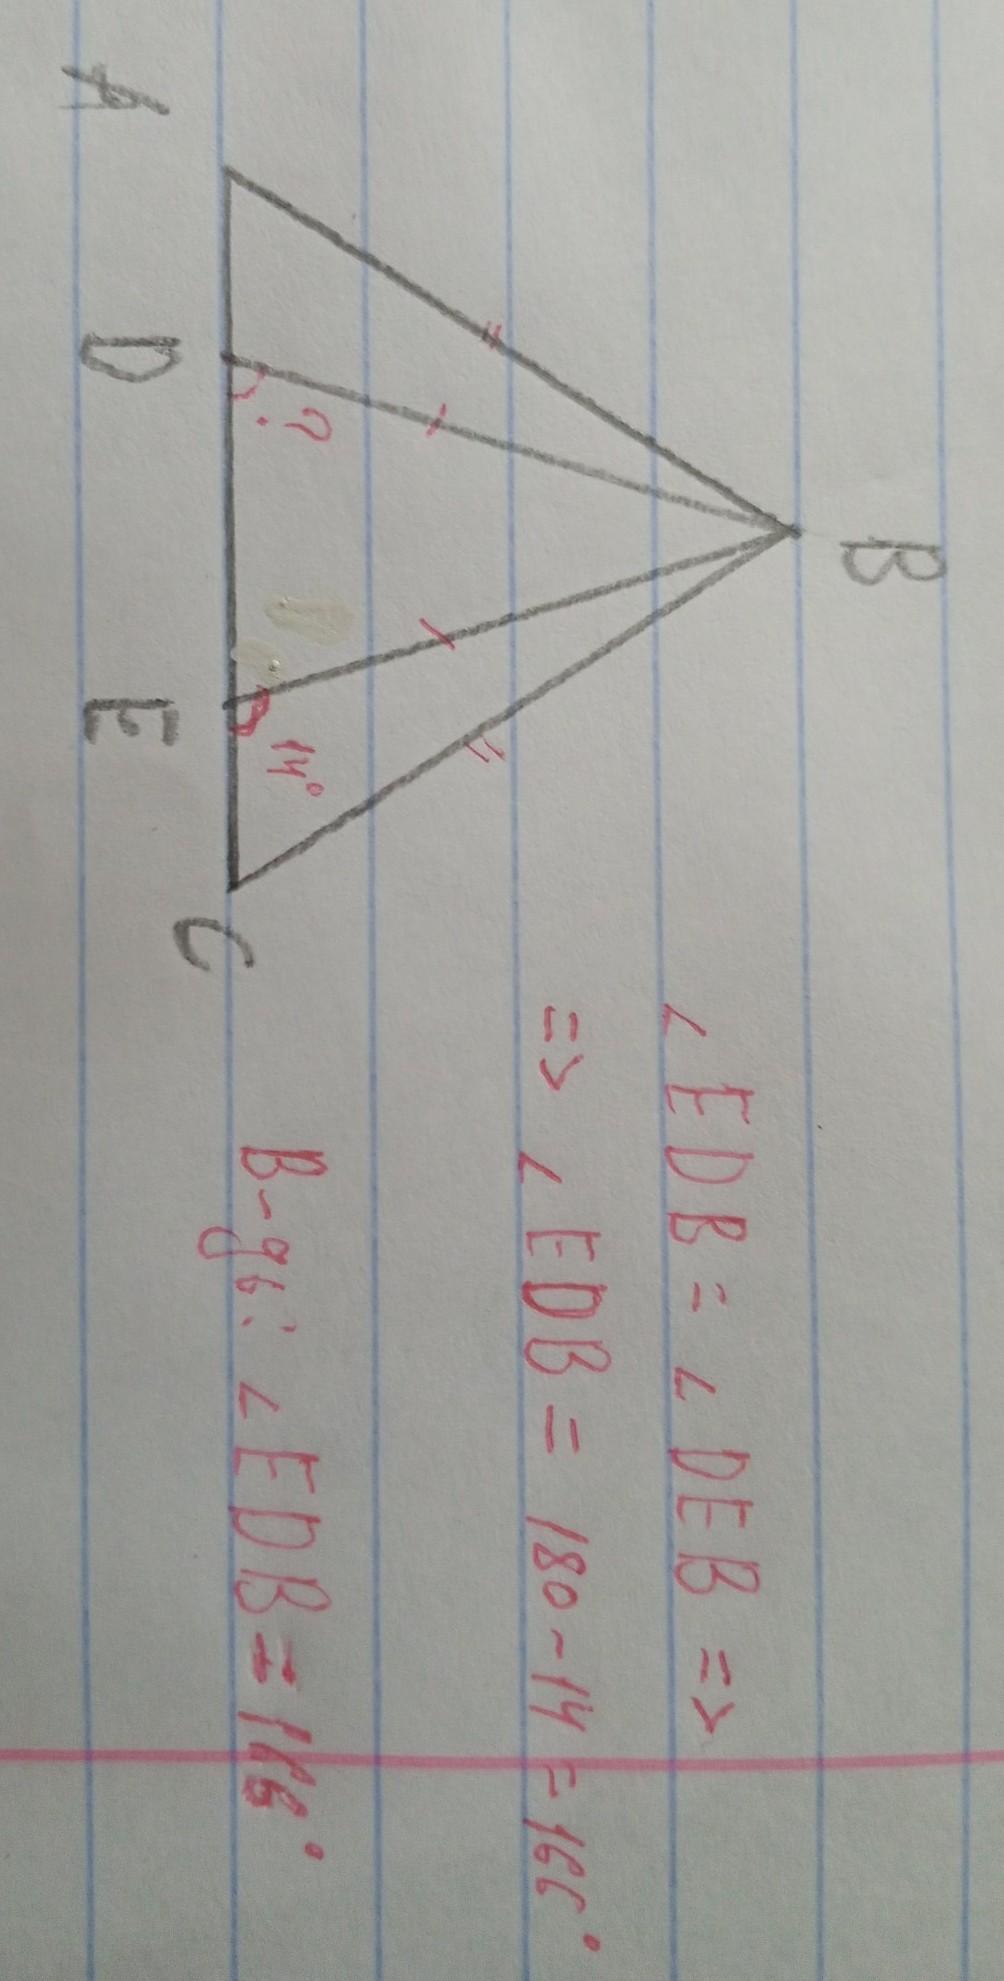 B
A
D
E
C
?
14°
∠EDB = ∠DEB =>
=> ∠EDB = 180-14=166°
В-дь: ∠EDB = 166°